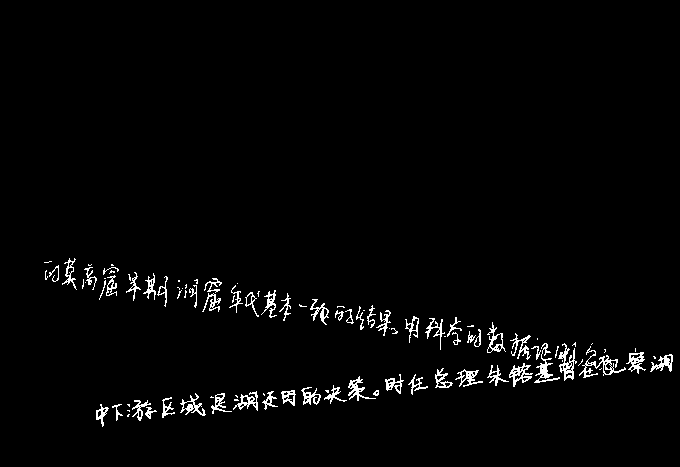 的莫高窟早期洞窟年代基本一致的结果。用科学的数据证明
中下游区域退湖还田的决策。时任总理朱镕基曾在视察湖